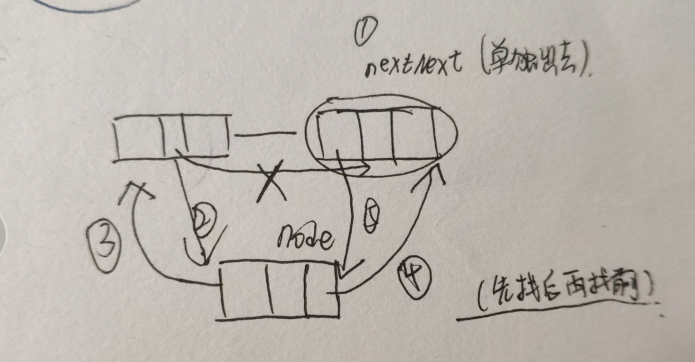 ①
nextNext (单独出去).
②
③
node
⑤
④
(先找后再找前)